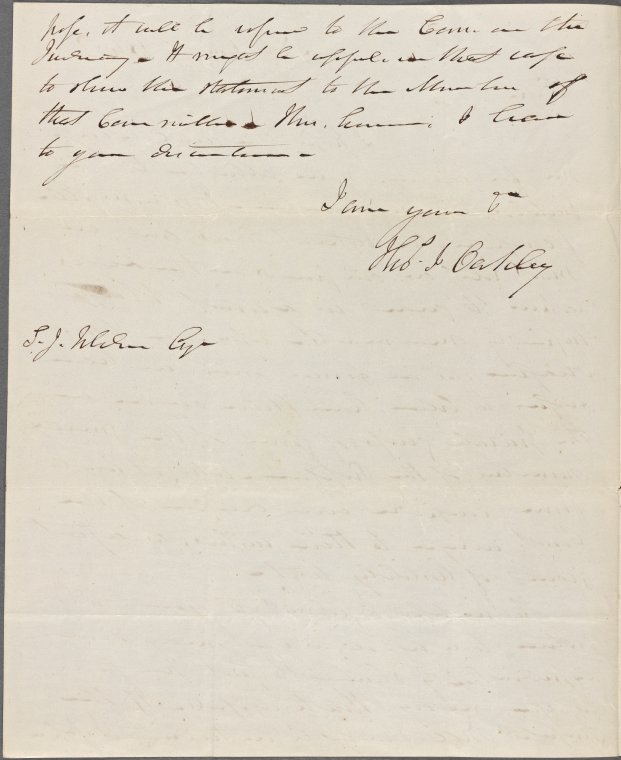 pose, it will be refered to the Com. on the
Judiciary - It might be useful in that case
to show this statement to the Members of
that Committee. This, however, I leave
to your discretion -
I am yours &c
Tho.s J Oakley
S. J. Tilden Esqr